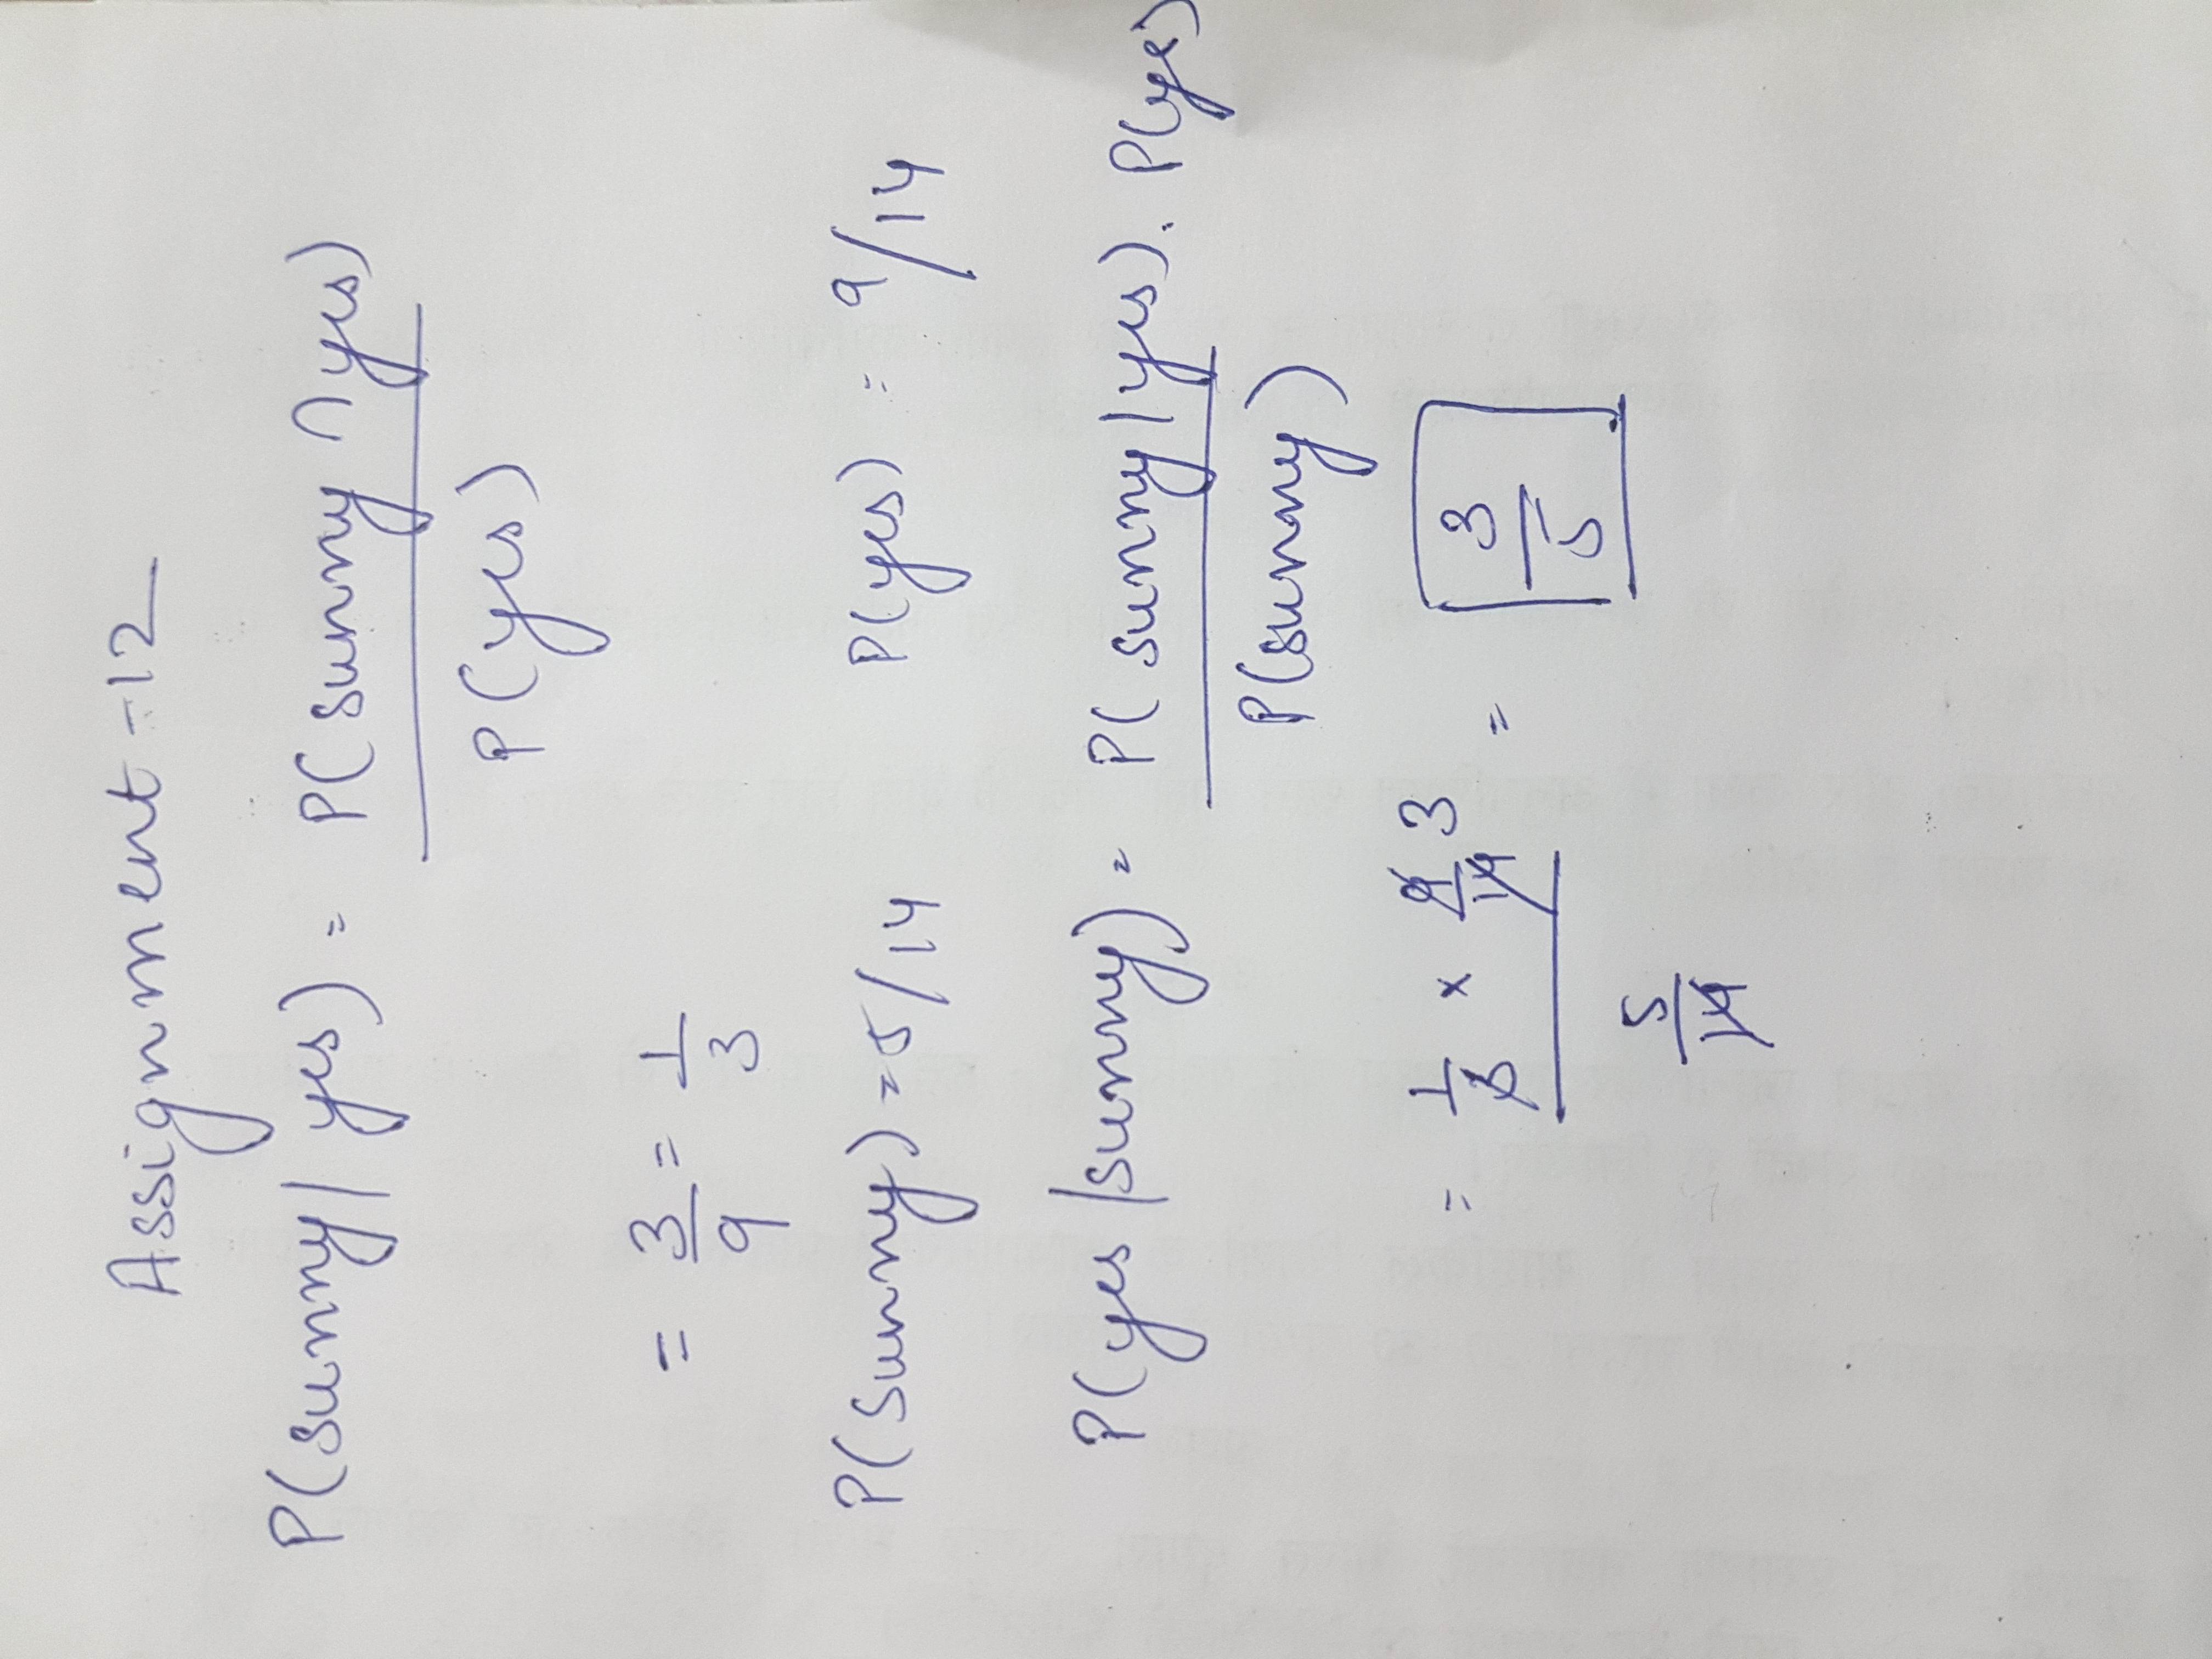 Assignment-12
P(sunny/ yes) = P(sunny ∩ yes)
P(yes)
= 3/9 = 1/3
P(Sunny) = 5/14 P(yes) = 9/14
P(yes/sunny) = P(sunny/yes). P(yes)
P(sunny)
= 1/3 × 9/14 3 = 3/5
5/14